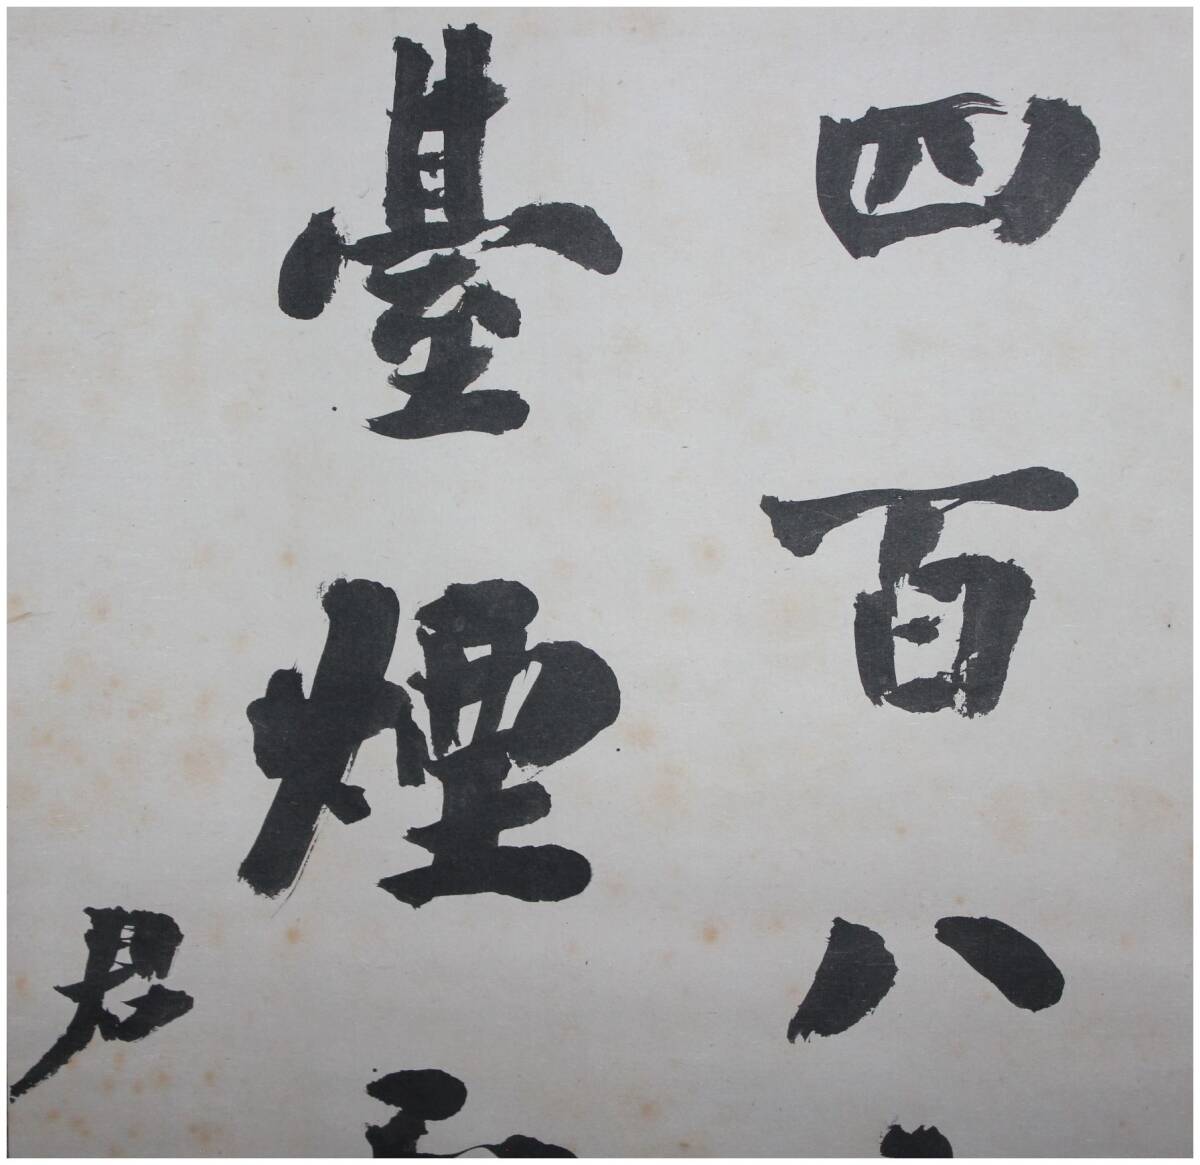 四百八
臺煙
君